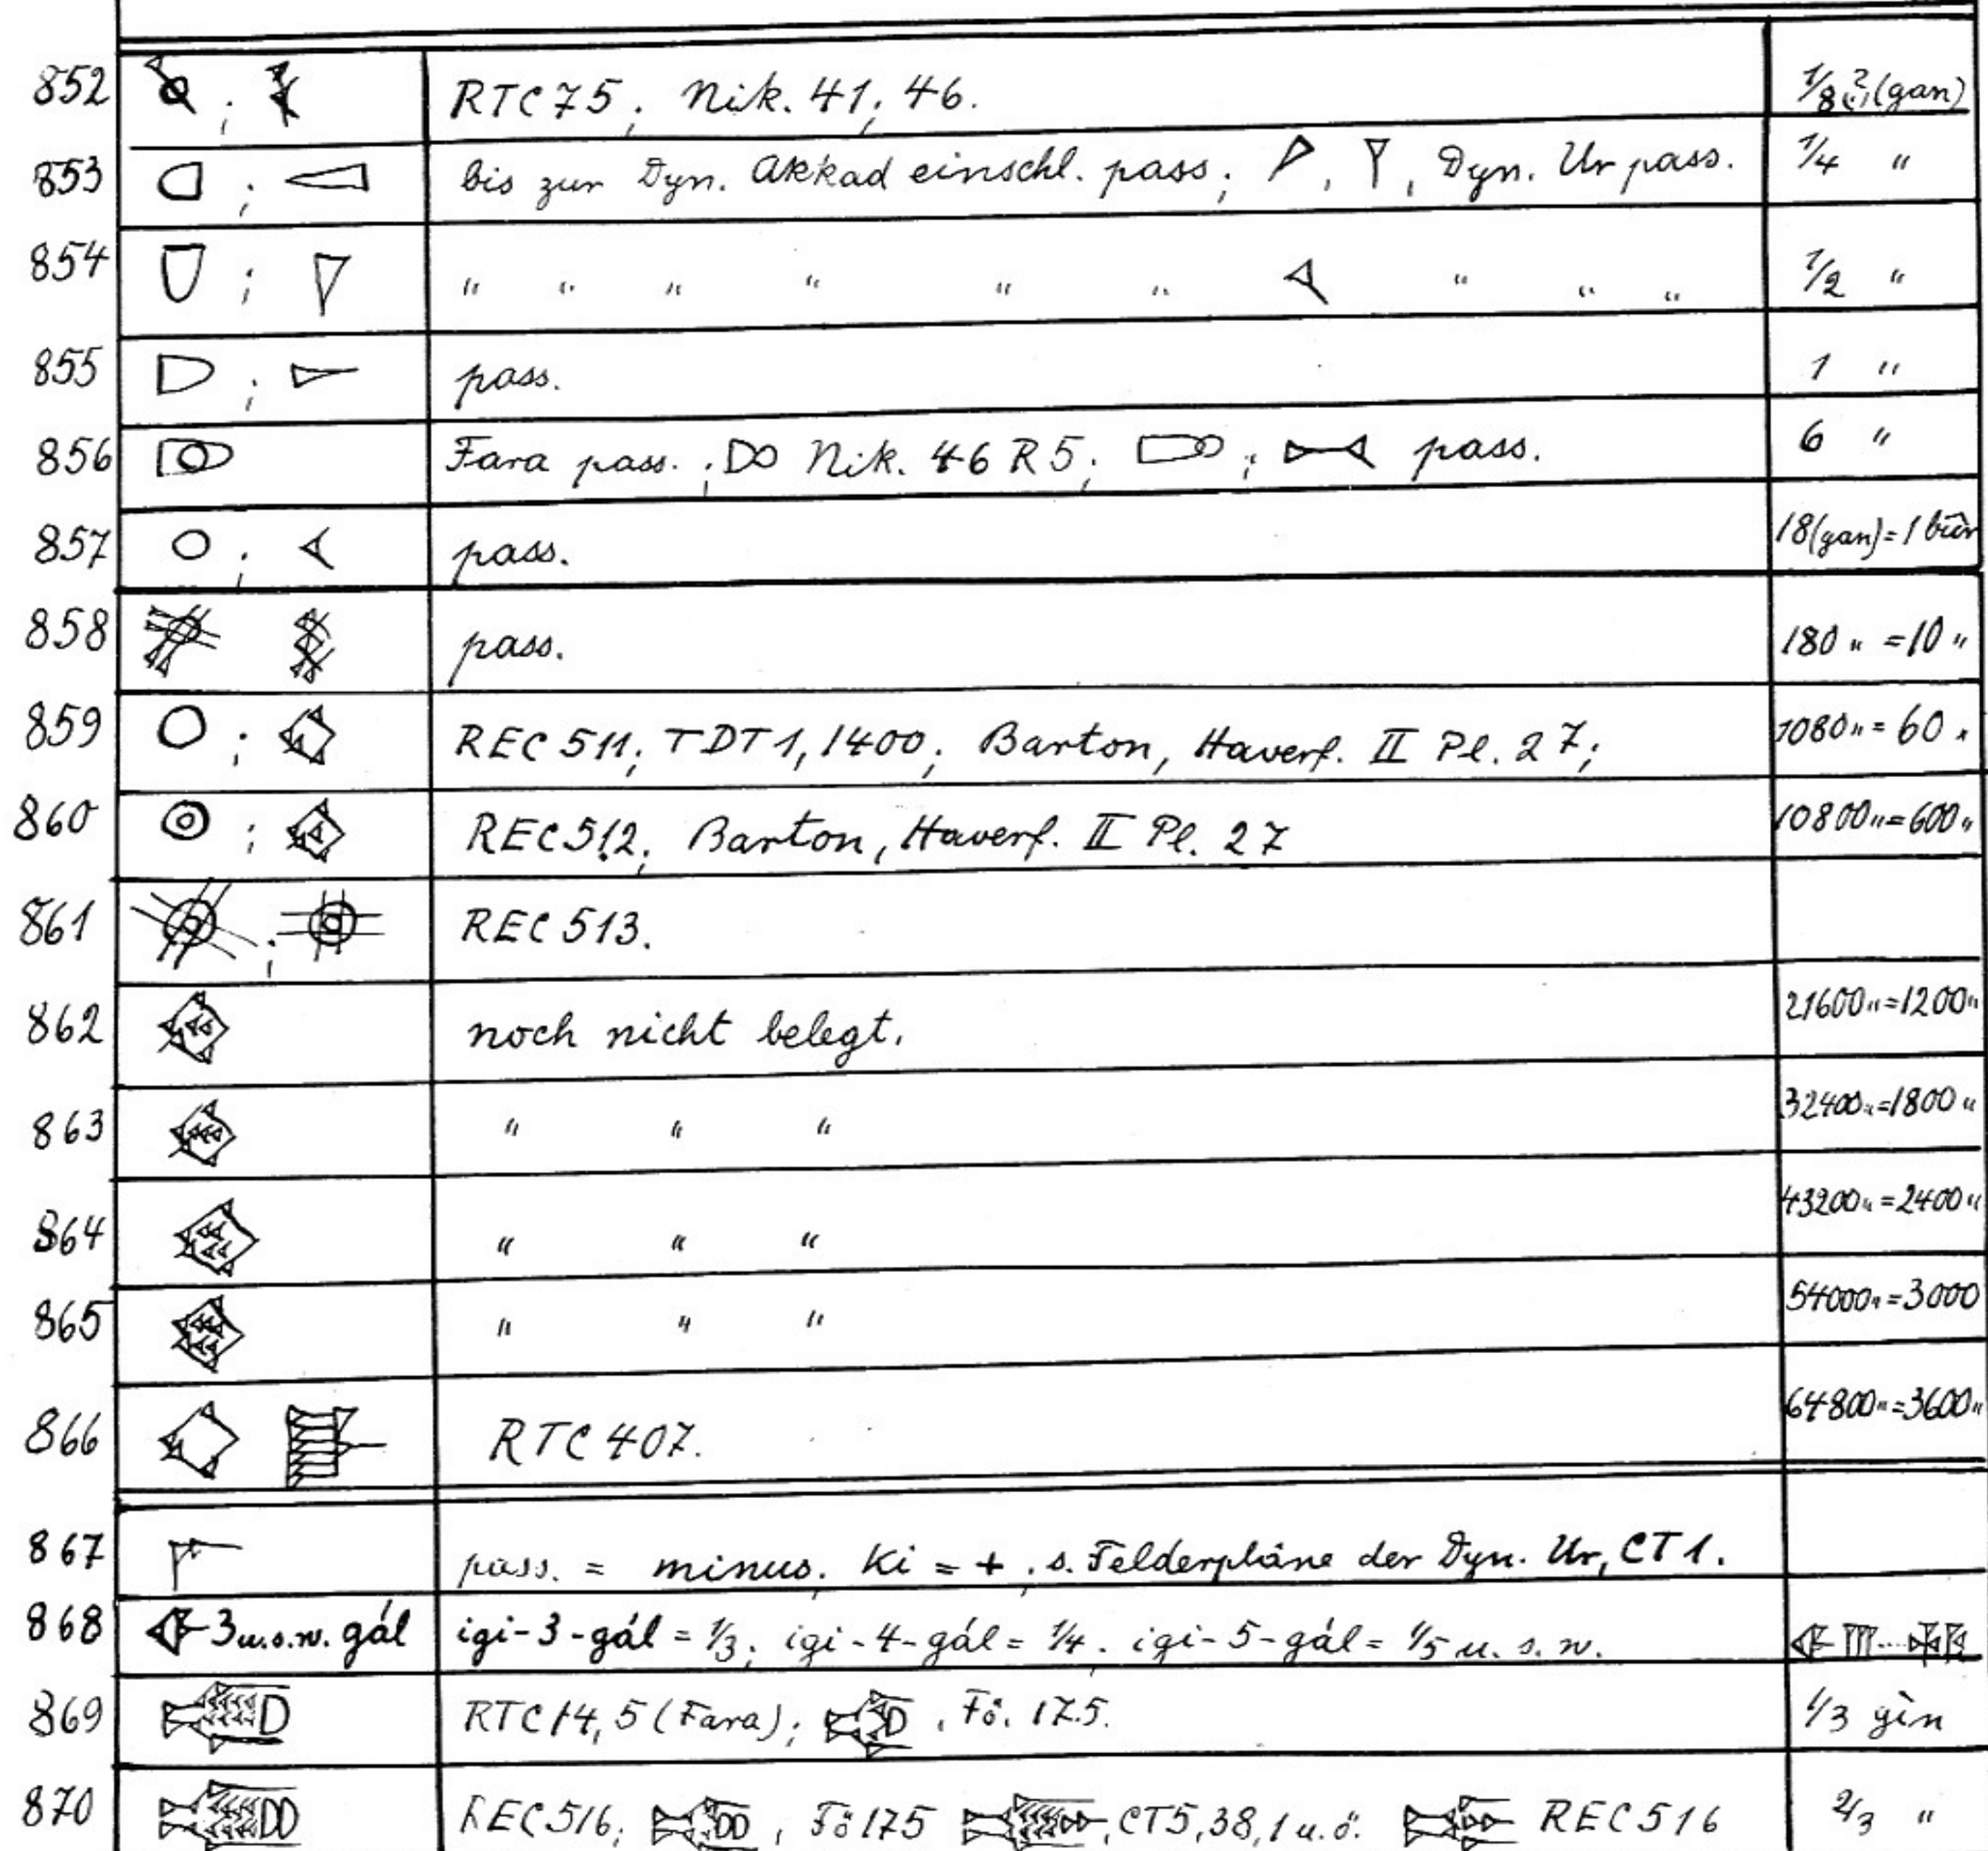 852 RTC 75; Nik. 41; 46. 1/8 (?) (gan)
853 bis zur Dyn. Akkad einschl. pass; , , Dyn. Ur pass. 1/4 "
854 " " " " " " " " " 1/2 "
855 pass. 1 "
856 Fara pass.; Nik. 46 R 5; ; pass. 6 "
857 pass. 18 (gan) = 1 bùr
858 pass. 180 " = 10 "
859 REC 511; TDT 1, 1400; Barton, Haverf. II Pl. 27; 1080 " = 60 "
860 REC 512; Barton, Haverf. II Pl. 27 10800 " = 600 "
861 REC 513.
862 noch nicht belegt. 21600 " = 1200 "
863 " " " 32400 " = 1800 "
864 " " " 43200 " = 2400 "
865 " " " 54000 " = 3000
866 RTC 407. 64800 " = 3600 "
867 pass. = minus; Ki = +; s. Felderpläne der Dyn. Ur, CT 1.
868 3 u.s.w. gál igi-3-gál = 1/3; igi-4-gál = 1/4. igi-5-gál = 1/5 u. s. w.
869 RTC 14, 5 (Fara); , Fö. 175. 1/3 gín
870 REC 516; , Fö 175 , CT 5, 38, 1 u. ö. REC 516 2/3 "